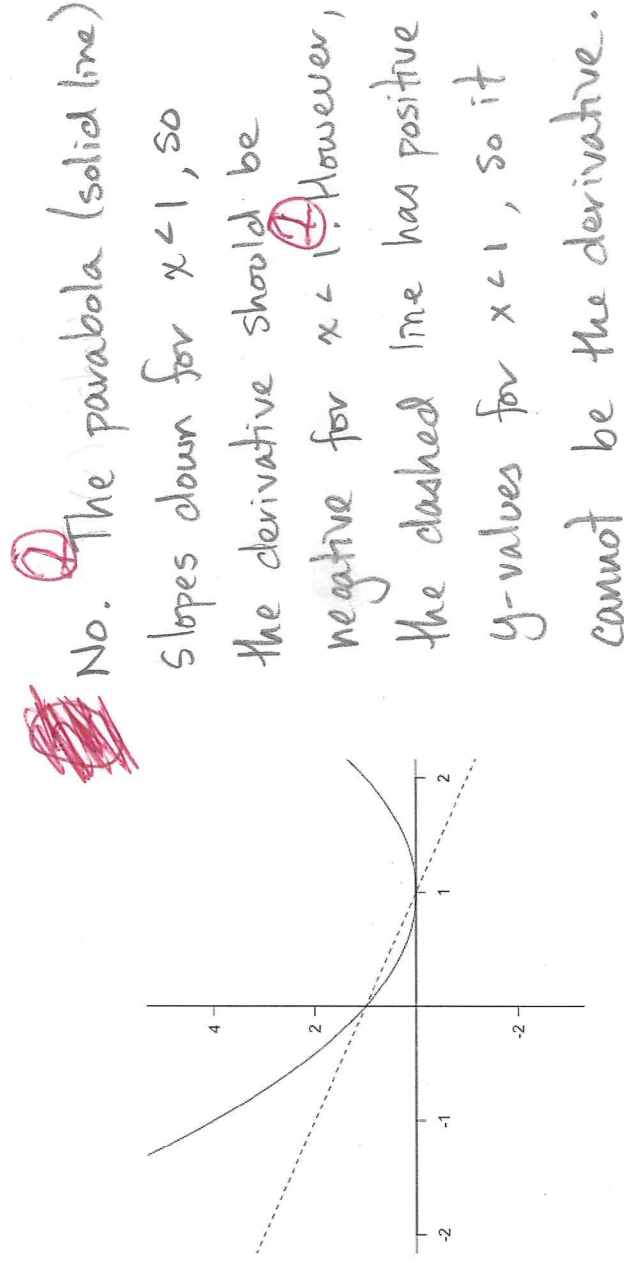 No. ② The parabola (solid line)
slopes down for x < 1, so
the derivative should be
negative for x < 1. ① However,
the dashed line has positive
y-values for x < 1, so it
cannot be the derivative.
4
2
-2
-1
1
2
-2